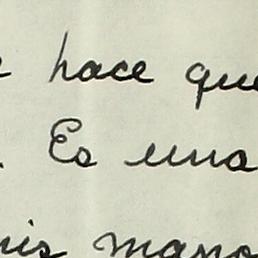 hace que
Es una
mis mano